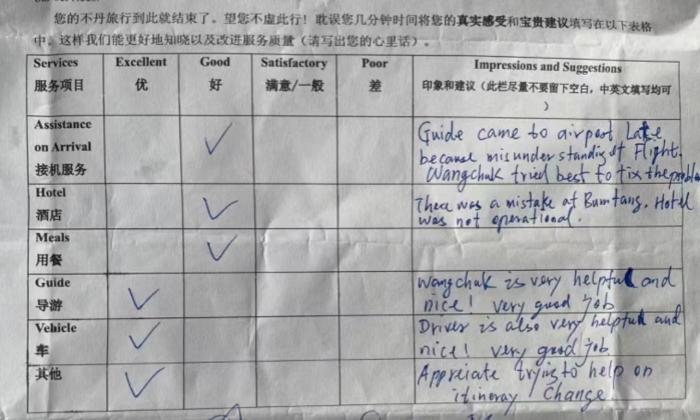 您的不丹旅行到此就结束了。望您不虚此行！耽误您几分钟时间将您的真实感受和宝贵建议填写在以下表格
中。这样我们能更好地知晓以及改进服务质量（请写出您的心里话）。
Services Excellent Good Satisfactory Poor Impressions and Suggestions
服务项目 优 好 满意/一般 差 印象和建议（此栏尽量不要留下空白，中英文填写均可
）
Assistance
on Arrival
接机服务
Guide came to airport Late
because misunderstanding of Flight.
Wangchuk tried best to fix the problem
Hotel
酒店
There was a mistake at Bumtang. Hotel
was not operational.
Meals
用餐
Guide
导游
Wangchuk is very helpful and
nice! very good job
Vehicle
车
Driver is also very helpful and
nice! very good job
其他
Appreciate trying to help on
itineray change